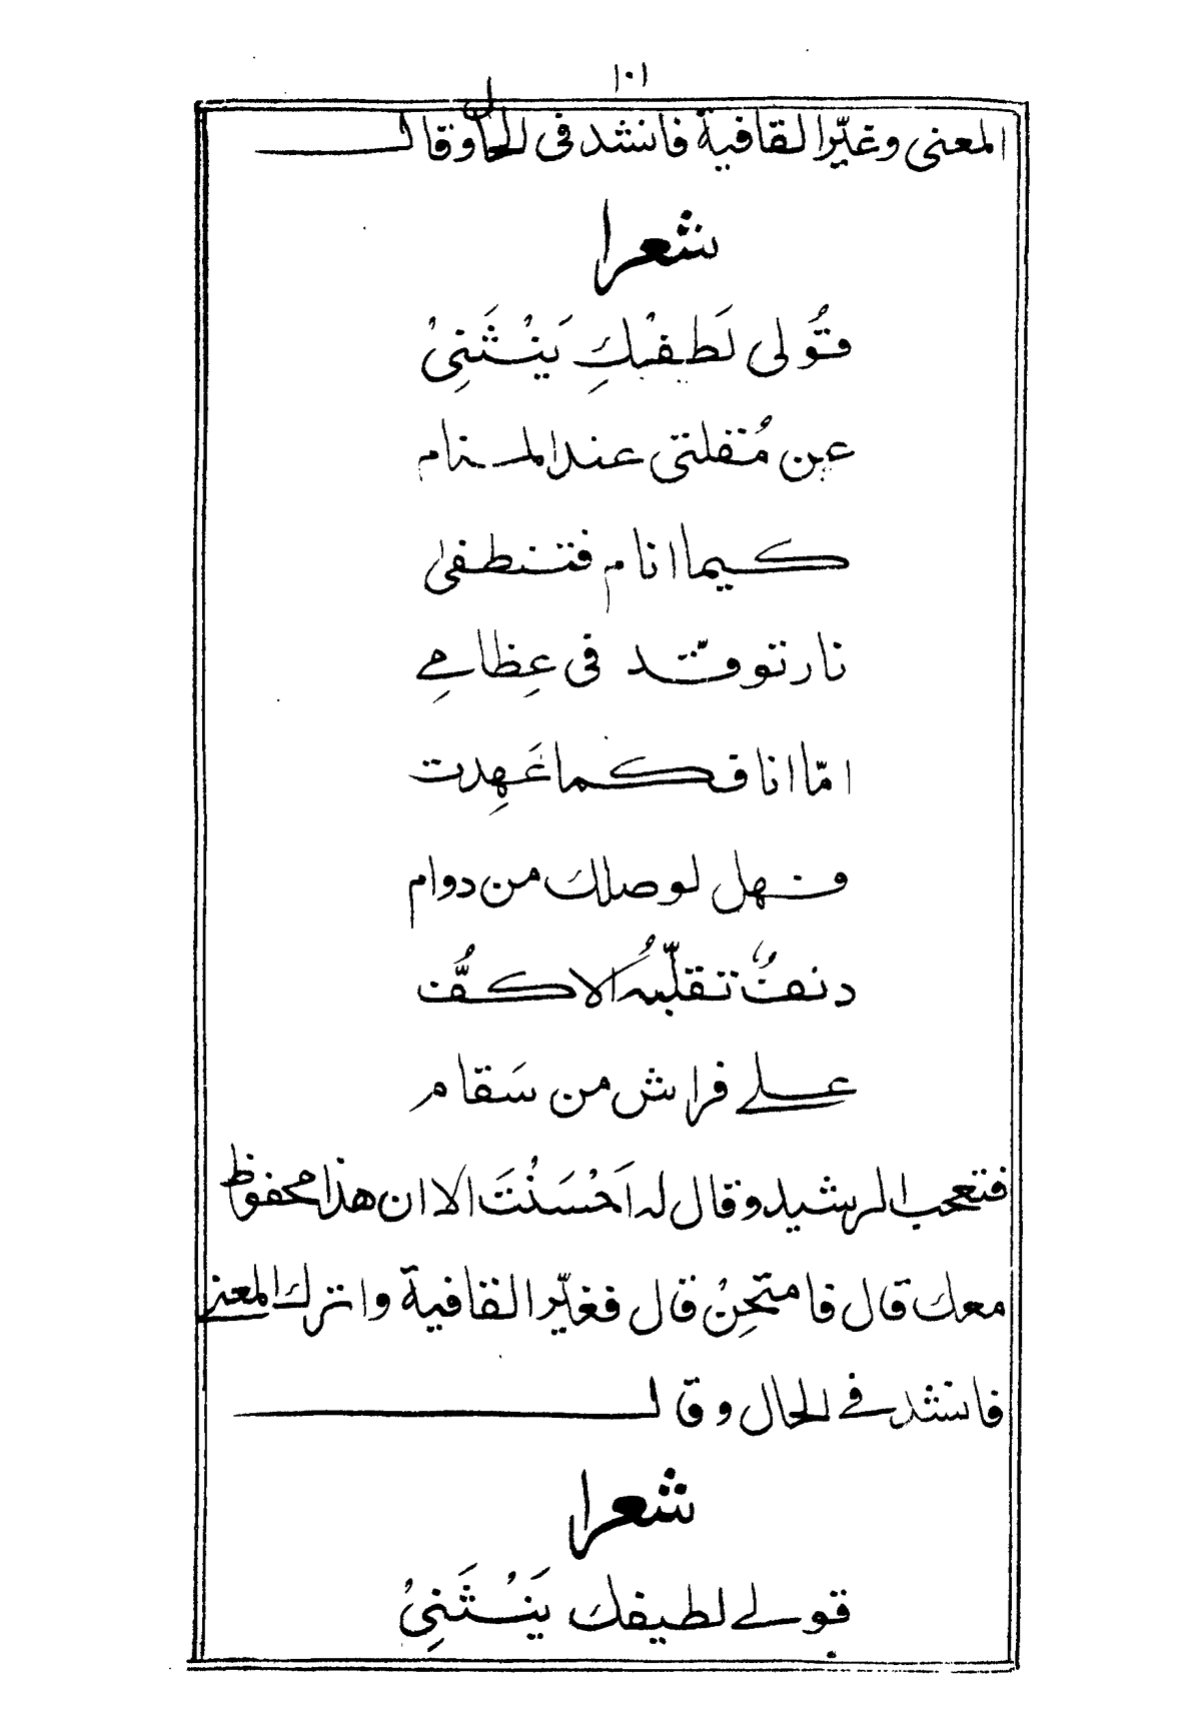 ١٠١
المعنى وغيّر القافية فانشد فى الحال وقال
شعرا
قُولى لَطيفْكِ يَنْثَنِىْ
عن مُقلتى عند المنام
كيما انام فتنطفى
نار توقّد فى عِظامِے
امّا انا فكما عَهِدت
فهل لوصلك من دوام
دنفٌ تقلّبهُ الاكفُّ
علے فراش من سَقام
فتعجب الرشيد وقال له اَحْسَنْتَ الا ان هذا محفوظ
معك قال فامتحِنْ قال فغيّر القافية واترك المعنى
فانشد فے الحال وقال
شعرا
قولے لطيفك يَنْثَنِىْ